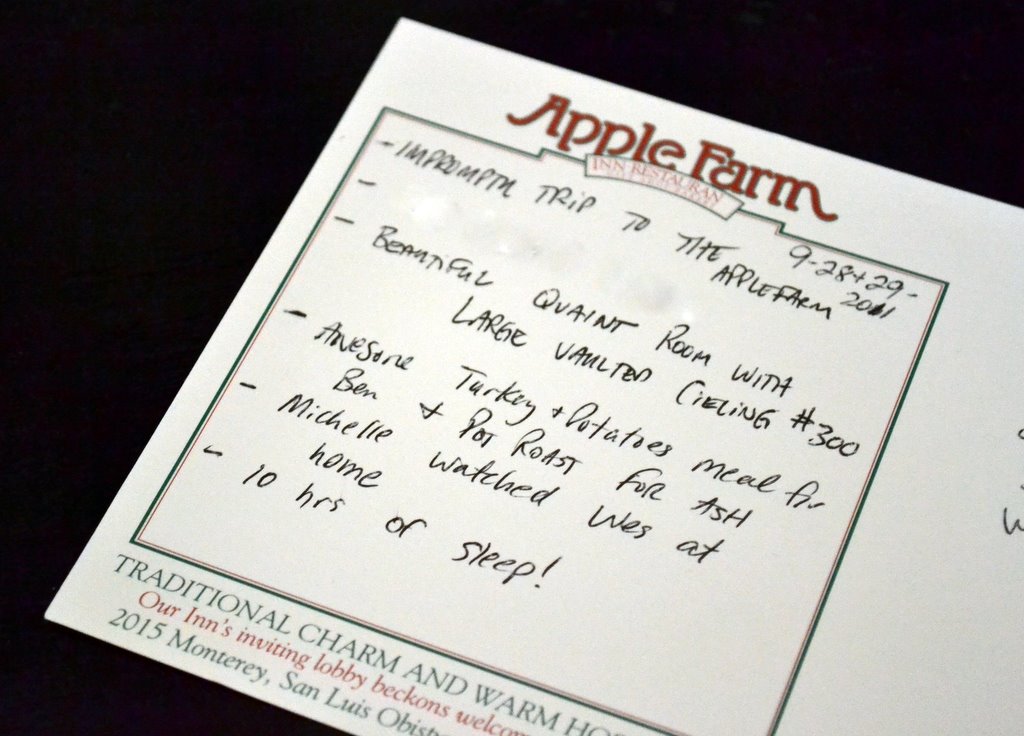 Apple Farm
INN RESTAURAN
- IMPROMPTU TRIP TO THE APPLEFARM
9-28+29-2011
-
- BEAUTIFUL QUAINT ROOM WITH
LARGE VAULTED CIELING #300
- AWESOME Turkey + Potatoes meal for
Ben + POT ROAST FOR ASH
- Michelle watched Wes at
home
- 10 hrs of sleep!
TRADITIONAL CHARM AND WARM HO
Our Inn's inviting lobby beckons welcom
2015 Monterey, San Luis Obisp